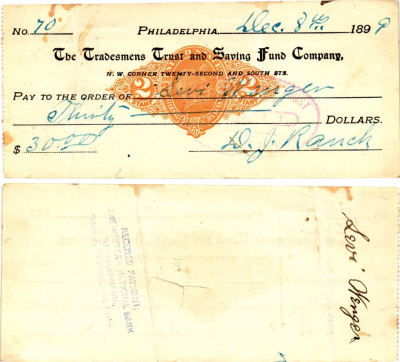 No. 70 PHILADELPHIA, Dec. 8th 1899
The Tradesmens Trust and Saving Fund Company,
N. W. CORNER TWENTY-SECOND AND SOUTH STS.
PAY TO THE ORDER OF Levi Wenger
2 2
STAMP
Thirty DOLLARS.
$ 30.00 D. J. Ranck
Levi Wenger
RECEIVED PAYMENT
NATIONAL BANK